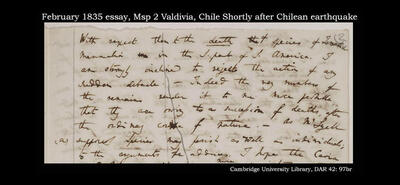 February 1835 essay, Msp 2 Valdivia, Chile Shortly after Chilean earthquake
With respect then to the death of species of
Mammalia in the S. part of S. America, I
am strongly inclined to reject the action of any
sudden debacle. Indeed the very numbers of
the remains render it to me more probable
that they are owing to a succession of deaths, after
the ordinary course of nature. — As Mr Lyell
supposes Species may perish as well as individuals;
to the arguments he adduces. I hope the Cavia
Cambridge University Library, DAR 42: 97br